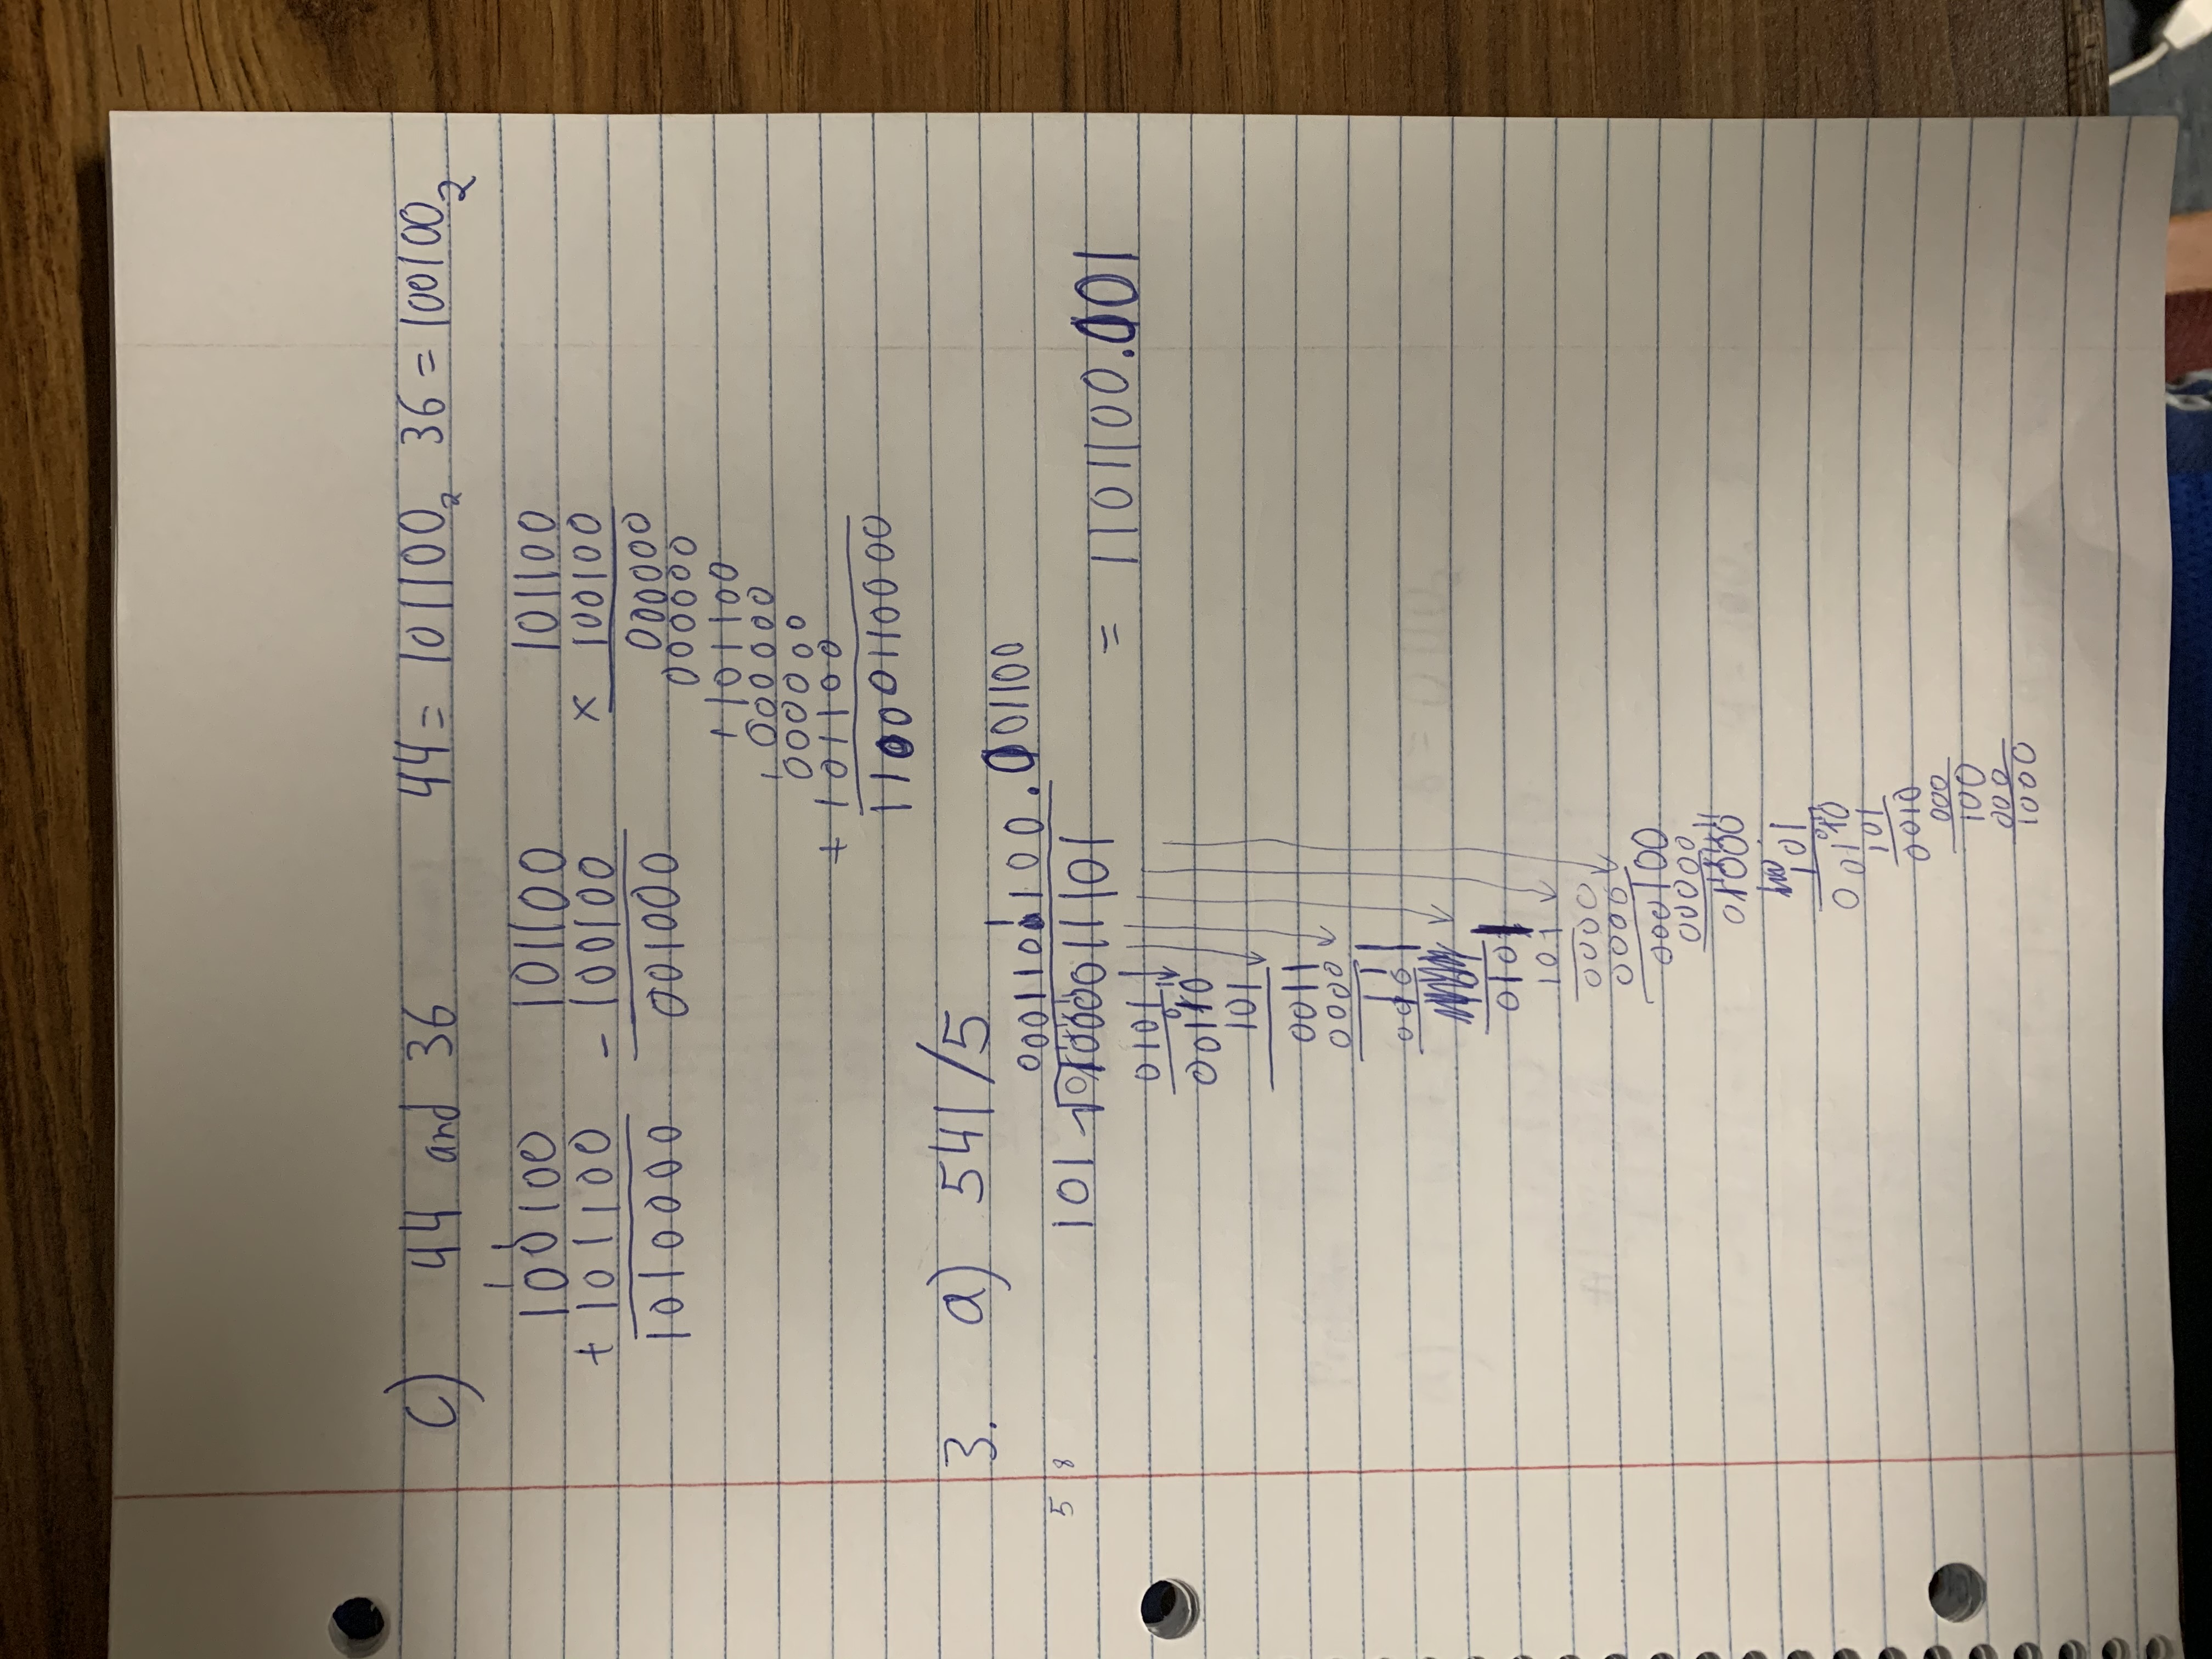 c) 44 and 36 44 = 101100₂ 36 = 100100₂
1 1
100100 101100 101100
+ 101100 - 100100 x 100100
1010000 001000 000000
000000
1 101100
1 000000
000000
+ 101100
11000110000
3. a) 541/5
0001101100.001100
5 8 101 01000011101 = 1101100.001
0101
00110
101
0011
0000
0101
101
0000
0000
000100
00000
01000
101
101
0010
000
100
000
1000